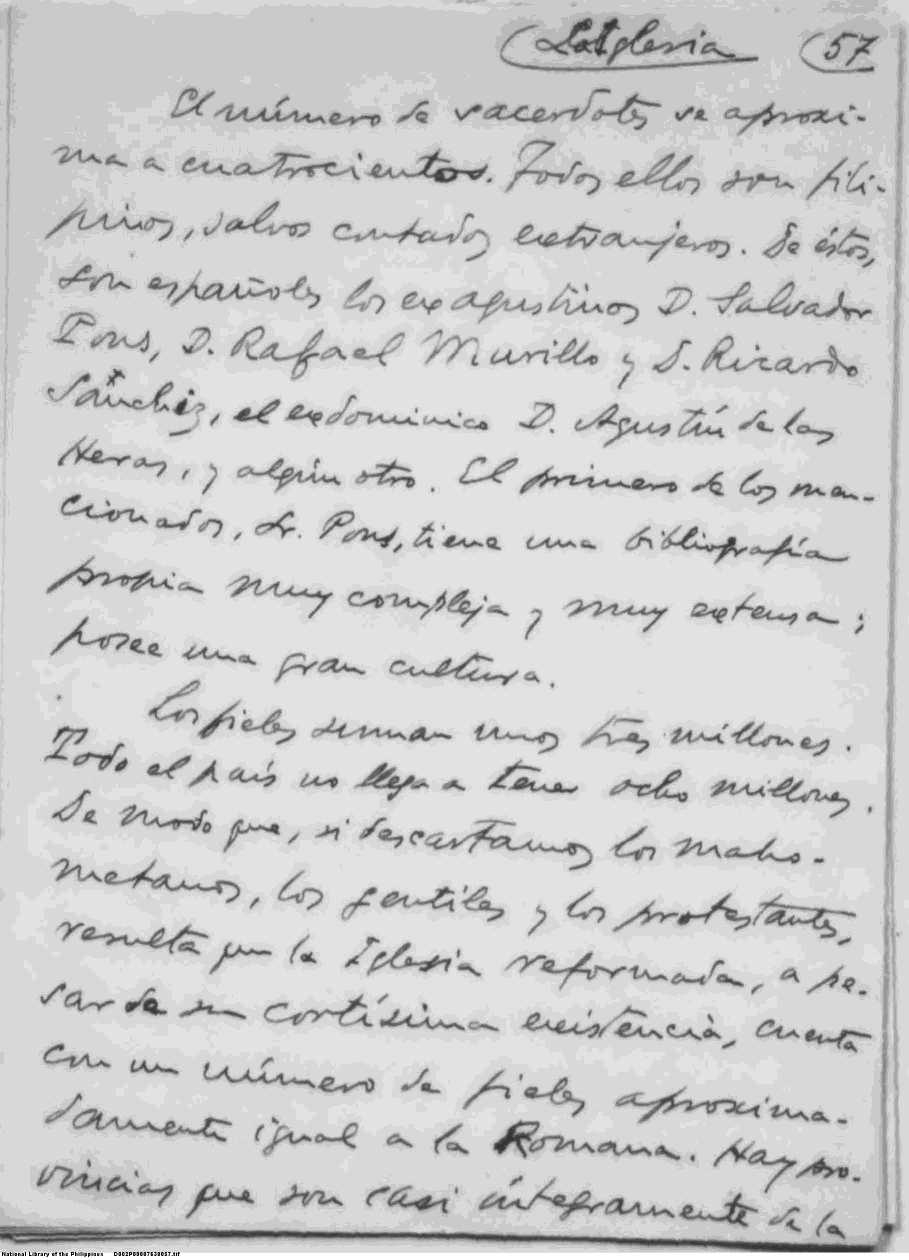 La Iglesia (57
El número de sacerdotes se aproxi-
ma a cuatrocientos. Todos ellos son fili-
pinos, salvos contados extranjeros. De éstos,
son españoles los exagustinos D. Salvador
Pons, D. Rafael Murillo y D. Ricardo
Sánchiz, el exdominico D. Agustín de las
Heras, y algún otro. El primero de los men-
cionados, Sr. Pons, tiene una bibliografía
propia muy compleja y muy extensa;
posee una gran cultura.
Los fieles suman unos tres millones.
Todo el país no llega a tener ocho millones.
De modo que, si descartamos los maho-
metanos, los gentiles y los protestantes,
resulta que la Iglesia reformada, a pe-
sar de su cortísima existencia, cuenta
con un número de fieles aproxima-
damente igual a la Romana. Hay pro-
vincias que son casi íntegramente de la
National Library of the Philippines D002P00007630057.tif